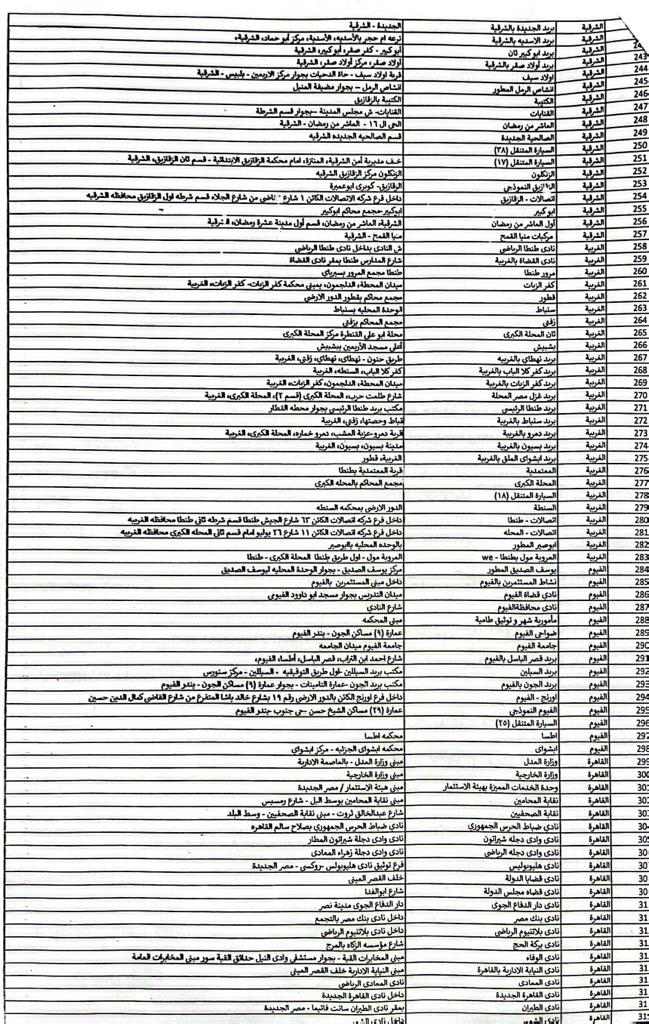 الشرقية بريد الجديدة بالشرقية الجديدة - الشرقية
الشرقية بريد الاسديه بالشرقية ترعه ام حجر بالأسديه، الأسدية، مركز أبو حماد، الشرقية،
الشرقية بريد ابو كبير ثان أبو كبير - كفر صقر، أبو كبير، الشرقية
243 الشرقية بريد أولاد صقر بالشرقية أولاد صقر، مركز أولاد صقر، الشرقية
244 الشرقية اولاد سيف قرية اولاد سيف - بجوار مركز الاربعين - بلبيس - الشرقية
245 الشرقية انشاص الرمل المطور انشاص الرمل – بجوار مضيفة المنيل
246 الشرقية الكتيبة الكتيبة بالزقازيق
247 الشرقية القنايات القنايات- ش مجلس المدينة –بجوار قسم الشرطة
248 الشرقية العاشر من رمضان الحى ال ١٦ - العاشر من رمضان - الشرقية
249 الشرقية الصالحية الجديدة قسم الصالحيه الجديده الشرقيه
250 الشرقية السيارة المتنقل (٣٨)
251 الشرقية السيارة المتنقل (١٧) خلف مديرية أمن الشرقية، المنتزة، امام محكمة الزقازيق الابتدائية - قسم ثان الزقازيق، الشرقية
252 الشرقية الزنكلون الزنكلون مركز الزقازيق الشرقيه
253 الشرقية الزقازيق النموذجي الزقازيق- كوبرى ابوعميرة
254 الشرقية اتصالات - الزقازيق داخل فرع شركه الاتصالات الكائن ١ شارع ناضي من شارع الجلاء قسم شرطه اول الزقازيق محافظه الشرقيه
255 الشرقية ابو كبير ابوكبير-مجمع محاكم ابوكبير
256 الشرقية أول العاشر من رمضان الشرقية، العاشر من رمضان، قسم أول مدينة عشرة رمضان، الشرقية
257 الشرقية مركبات منيا القمح منيا القمح - الشرقية
258 الغربية نادى طنطا الرياضي ش النادى بداخل نادى طنطا الرياضى
259 الغربية نادى القضاة بالغربية شارع المدارس طنطا بمقر نادى القضاة
260 الغربية مرور طنطا طنطا مجمع المرور بسبرباى
261 الغربية كفر الزيات ميدان المحطة، الدلجمون، بمبنى محكمة كفر الزيات- كفر الزيات، الغربية
262 الغربية قطور مجمع محاكم بقطور الدور الارضي
263 الغربية سنباط الوحدة المحليه بسنباط
264 الغربية زفتى مجمع المحاكم بزفتى
265 الغربية ثان المحلة الكبرى محلة ابو على القنطرة مركز المحلة الكبرى
266 الغربية بشبيش أعلى مسجد الأربعين ببشبيش
267 الغربية بريد نهطاي بالغربيه طريق حنون - نهطاى، نهطاى، زفتى، الغربية
268 الغربية بريد كفر كلا الباب بالغربية كفر كلا الباب، السنطه، الغربية
269 الغربية بريد كفر الزيات بالغربية ميدان المحطة، الدلجمون، كفر الزيات، الغربية
270 الغربية بريد غزل مصر المحلة شارع طلعت حرب، المحلة الكبرى (قسم ٢)، المحلة الكبرى، الغربية
271 الغربية بريد طنطا الرئيسي مكتب بريد طنطا الرئيسي بجوار محطه القطار
272 الغربية بريد سنباط بالغربية قباط وحصتها، زفتى، الغربية
273 الغربية بريد دمرو بالغربية قرية دمرو-عزبة المشب، دمرو خماره، المحلة الكبرى، الغربية
274 الغربية بريد بسيون بالغربية مدينة بسيون، بسيون، الغربية
275 الغربية بريد ابشواى الملق بالغربية الغربية، قطور
276 الغربية المعتمدية قرية المعتمدية بطنطا
277 الغربية المحلة الكبرى مجمع المحاكم بالمحله الكبرى
278 الغربية السيارة المتنقل (١٨)
279 الغربية السنطة الدور الارضى بمحكمه السنطه
280 الغربية اتصالات - طنطا داخل فرع شركه اتصالات الكائن ٦٣ شارع الجيش طنطا قسم شرطه ثانى طنطا محافظه الغربيه
281 الغربية اتصالات - المحله داخل فرع شركه اتصالات الكائن ١١ شارع ٢٦ يوليو امام قسم ثانى المحله الكبرى محافظه الغربيه
282 الغربية ابوصير المطور بالوحده المحليه بابوصير
283 الغربية العروبة مول بطنطا - we العروبة مول - اول طريق طنطا المحلة الكبرى - طنطا
284 الفيوم يوسف الصديق المطور مركز يوسف الصديق - بجوار الوحدة المحلية ليوسف الصديق
285 الفيوم نشاط المستثمرين بالفيوم داخل مبنى المستثمرين بالفيوم
286 الفيوم نادى قضاة الفيوم ميدان التدريس بجوار مسجد ابو داوود الفيومى
287 الفيوم نادى محافظةالفيوم شارع النادي
288 الفيوم مأمورية شهر و توثيق طامية مبنى المحكمه
289 الفيوم ضواحى الفيوم عمارة (٩) مساكن الجون - بندر الفيوم
290 الفيوم جامعة الفيوم جامعة الفيوم ميدان الجامعه
291 الفيوم بريد قصر الباسل بالفيوم شارع احمد ابن التراب، قصر الباسل، أطسا، الفيوم،
292 الفيوم بريد السيلين مكتب بريد السيلين -اول طريق التوفيقيه - السيلين - مركز سنورس
293 الفيوم بريد الجون بالفيوم مكتب بريد الجون- عمارة التامينات - بجوار عمارة (٩) مساكن الجون - بندر الفيوم
294 الفيوم اورنج - الفيوم داخل فرع اورنج الكائن بالدور الارضى رقم ١٩ بشارع خالد باشا المتفرع من شارع القاضى كمال الدين حسين
295 الفيوم الفيوم النموذجي عمارة (٢٩) مساكن الشيخ حسن -حى جنوب -بندر الفيوم
296 الفيوم السيارة المتنقل (٢٥)
297 الفيوم اطسا محكمه اطسا
298 الفيوم ابشواى محكمه ابشواى الجزئيه - مركز ابشواى
299 القاهرة وزارة العدل مبنى وزارة العدل - بالعاصمة الادارية
300 القاهرة وزارة الخارجية مبنى وزارة الخارجية
301 القاهرة وحدة الخدمات المميزة بهيئة الاستثمار مبنى هيئة الاستثمار / مصر الجديدة
302 القاهرة نقابة المحامين مبنى نقابة المحامين بوسط البل - شارع رمسيس
303 القاهرة نقابة الصحفيين شارع عبدالخالق ثروت - مبنى نقابة الصحفيين - وسط البلد
304 القاهرة نادى ضباط الحرس الجمهوري نادى ضباط الحرس الجمهوري بصلاح سالم القاهره
305 القاهرة نادى وادى دجله شيراتون نادى وادى دجلة شيراتون المطار
30 القاهرة نادى وادى دجلة الرياضى نادى وادى دجلة زهراء المعادى
30 القاهرة نادى هليوبوليس فرع توثيق نادى هليوبولس -روكسى - مصر الجديدة
30 القاهرة نادى قضايا الدولة خلف القصر العينى
30 القاهرة نادى قضاه مجلس الدولة شارع ابوالفدا
31 القاهرة نادى دار الدفاع الجوى دار الدفاع الجوى مدينة نصر
31 القاهرة نادى بنك مصر داخل نادى بنك مصر بالتجمع
31 القاهرة نادى بلاتنيوم الرياضى داخل نادى بلاتنيوم الرياضى
31 القاهرة نادى بركة الحج شارع مؤسسه الزكاه بالمرج
31 القاهرة نادى الوفاء مبنى المخابرات القبة - بجوار مستشفى وادى النيل حدائق القبة سور مبنى المخابرات العامة
31 القاهرة نادى النيابة الادارية بالقاهرة مبنى النيابة الادارية خلف القصر العينى
31 القاهرة نادى المعادى نادى المعادى الرياضى
31 القاهرة نادى القاهرة الجديدة داخل نادى القاهرة الجديدة
31 القاهرة نادى الطيران بمقر نادى الطيران سانت فاتيما - مصر الجديدة
31 القاهرة